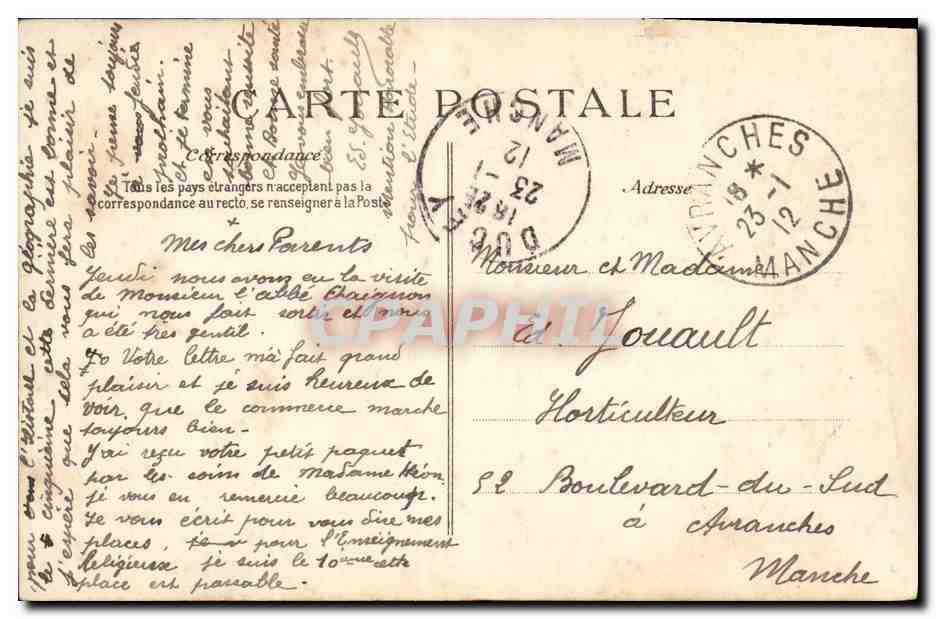 CARTE POSTALE
Correspondance
Tous les pays étrangers n'acceptent pas la
correspondance au recto, se renseigner à la Poste
Adresse
DUCEY
MANCHE
23 -1
12
AVRANCHES
18 *
23 -1
12
MANCHE
Mes chers Parents
Jeudi nous avons eu la visite
de Monsieur l'abbé Chaignon
qui nous fait sortir et nous
a été très gentil.
Votre lettre m'a fait grand
plaisir et je suis heureux de
voir que le commerce marche
toujours bien -
J'ai reçu votre petit paquet
par les soins de Madame
je vous en remercie beaucoup.
Je vous écrit pour vous dire mes
places, pour l'Enseignement
Religieux je suis le 10ème cette
place est passable.
pour l'Histoire et la géographie je suis
le cinquième cette dernière est bonne et
j'espère que sela vous fera plaisir de
les savoir -
Je pense toujours
à
prochain.
Et je termine
en vous
souhaitant
bonne réussite
et bonne santé
je vous embrasse
bien fort.
Ed. Jouault
Mention honorable
pour l'Etude -
Monsieur et Madame
Ed Jouault
Horticulteur
52 Boulevard-du-Sud
à Avranches
Manche
CPAPHIL